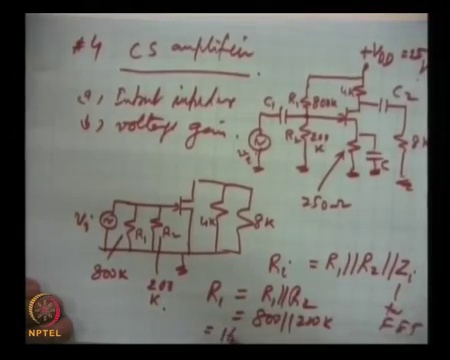 #4 CS amplifier.
a, Input impedance
b, voltage gain.
+VDD = 25
4K
C2
R1 800K
C1
R2 200
K
8K
C
250Ω
Vi
R1
R2
4K
8K
800K
200
K.
Ri = R1 || R2 || Zi
FET
R1 = R1 || R2
= 800 || 200K
= 16
NPTEL